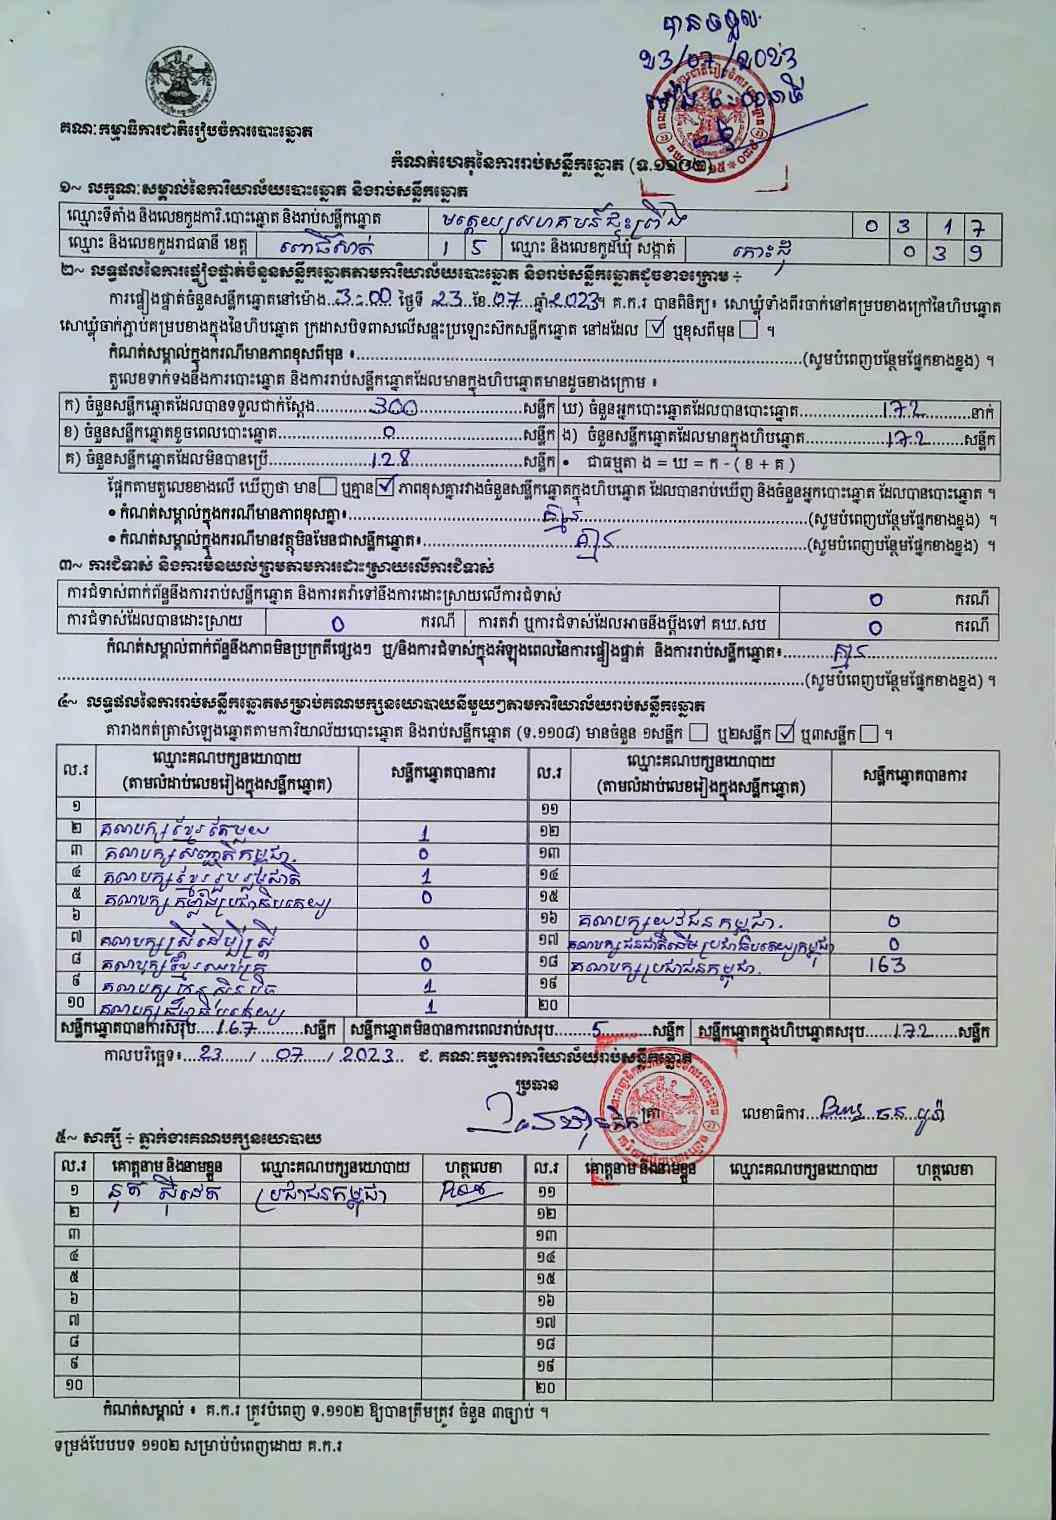 បានទទួល
23/07/2023
គណៈកម្មាធិការជាតិរៀបចំការបោះឆ្នោត
កំណត់ហេតុនៃការរាប់សន្លឹកឆ្នោត (ទ.១១០២)
១~ លក្ខណៈសម្គាល់នៃការិយាល័យបោះឆ្នោត និងរាប់សន្លឹកឆ្នោត
ឈ្មោះទីតាំង និងលេខកូដការិ.បោះឆ្នោត និងរាប់សន្លឹកឆ្នោត មត្តេយ្យសហគមន៍ជុះព្រីង 0 3 1 7
ឈ្មោះ និងលេខកូដរាជធានី ខេត្ត ពោធិ៍សាត់ 1 5 ឈ្មោះ និងលេខកូដឃុំ សង្កាត់ កោះជុំ 0 3 9
២~ លទ្ធផលនៃការផ្ទៀងផ្ទាត់ចំនួនសន្លឹកឆ្នោតតាមការិយាល័យបោះឆ្នោត និងរាប់សន្លឹកឆ្នោតដូចខាងក្រោម ÷
ការផ្ទៀងផ្ទាត់ចំនួនសន្លឹកឆ្នោតនៅម៉ោង...3:00 ថ្ងៃទី 23 ខែ 07 ឆ្នាំ 2023។ គ.ក.រ បានពិនិត្យ៖ សោឃ្លុំទាំងពីរចាក់នៅគម្របខាងក្រៅនៃហិបឆ្នោត
សោឃ្លុំចាក់ភ្ជាប់គម្របខាងក្នុងនៃហិបឆ្នោត ក្រដាសបិទពាសលើសន្ទះប្រឡោះស៊កសន្លឹកឆ្នោត នៅដដែល ☑ ឬខុសពីមុន ☐ ។
កំណត់សម្គាល់ក្នុងករណីមានភាពខុសពីមុន ៖........(សូមបំពេញបន្ថែមផ្នែកខាងខ្នង) ។
តួលេខទាក់ទងនឹងការបោះឆ្នោត និងការរាប់សន្លឹកឆ្នោតដែលមានក្នុងហិបឆ្នោតមានដូចខាងក្រោម ៖
ក) ចំនួនសន្លឹកឆ្នោតដែលបានទទួលជាក់ស្តែង........300........សន្លឹក ឃ) ចំនួនអ្នកបោះឆ្នោតដែលបានបោះឆ្នោត........172........នាក់
ខ) ចំនួនសន្លឹកឆ្នោតខូចពេលបោះឆ្នោត........0........សន្លឹក ង) ចំនួនសន្លឹកឆ្នោតដែលមានក្នុងហិបឆ្នោត........172........សន្លឹក
គ) ចំនួនសន្លឹកឆ្នោតដែលមិនបានប្រើ........128........សន្លឹក • ជាធម្មតា ង = ឃ = ក - ( ខ + គ )
ផ្អែកតាមតួលេខខាងលើ ឃើញថា មាន ☐ ឬគ្មាន ☑ ភាពខុសគ្នារវាងចំនួនសន្លឹកឆ្នោតក្នុងហិបឆ្នោត ដែលបានរាប់ឃើញ និងចំនួនអ្នកបោះឆ្នោត ដែលបានបោះឆ្នោត ។
• កំណត់សម្គាល់ក្នុងករណីមានភាពខុសគ្នា៖........គ្មាន........(សូមបំពេញបន្ថែមផ្នែកខាងខ្នង) ។
• កំណត់សម្គាល់ក្នុងករណីមានវត្ថុមិនមែនជាសន្លឹកឆ្នោត៖........គ្មាន........(សូមបំពេញបន្ថែមផ្នែកខាងខ្នង) ។
៣~ ការជំទាស់ និងការមិនយល់ព្រមតាមការដោះស្រាយលើការជំទាស់
ការជំទាស់ពាក់ព័ន្ធនឹងការរាប់សន្លឹកឆ្នោត និងការតវ៉ាទៅនឹងការដោះស្រាយលើការជំទាស់ 0 ករណី
ការជំទាស់ដែលបានដោះស្រាយ 0 ករណី ការតវ៉ា ឬការជំទាស់ដែលអាចនឹងប្តឹងទៅ គឃ.សប 0 ករណី
កំណត់សម្គាល់ពាក់ព័ន្ធនឹងភាពមិនប្រក្រតីផ្សេងៗ ឬ/និងការជំទាស់ក្នុងអំឡុងពេលនៃការផ្ទៀងផ្ទាត់ និងការរាប់សន្លឹកឆ្នោត៖........គ្មាន........
........(សូមបំពេញបន្ថែមផ្នែកខាងខ្នង) ។
៤~ លទ្ធផលនៃការរាប់សន្លឹកឆ្នោតសម្រាប់គណបក្សនយោបាយនីមួយៗតាមការិយាល័យរាប់សន្លឹកឆ្នោត
តារាងកត់ត្រាសំឡេងឆ្នោតតាមការិយាល័យបោះឆ្នោត និងរាប់សន្លឹកឆ្នោត (ទ.១១០៨) មានចំនួន ១សន្លឹក ☐ ឬ២សន្លឹក ☑ ឬ៣សន្លឹក ☐ ។
ល.រ ឈ្មោះគណបក្សនយោបាយ (តាមលំដាប់លេខរៀងក្នុងសន្លឹកឆ្នោត) សន្លឹកឆ្នោតបានការ ល.រ ឈ្មោះគណបក្សនយោបាយ (តាមលំដាប់លេខរៀងក្នុងសន្លឹកឆ្នោត) សន្លឹកឆ្នោតបានការ
១ ១១
២ គណបក្សខ្មែរតែមួយ 1 ១២
៣ គណបក្សសញ្ជាតិកម្ពុជា. 0 ១៣
៤ គណបក្សខ្មែររួបរួមជាតិ 1 ១៤
៥ គណបក្សកម្លាំងប្រជាធិបតេយ្យ 0 ១៥
៦ ១៦ គណបក្សយុវជនកម្ពុជា. 0
៧ គណបក្សស្រ្តីដើម្បីស្ត្រី 0 ១៧ គណបក្សជនជាតិដើមប្រជាធិបតេយ្យកម្ពុជា 0
៨ គណបក្សខ្មែរឈប់ក្រ 0 ១៨ គណបក្សប្រជាជនកម្ពុជា. 163
៩ គណបក្សហ្វ៊ុនស៊ិនប៉ិច 1 ១៩
១០ គណបក្សធម្មាធិបតេយ្យ 1 ២០
សន្លឹកឆ្នោតបានការសរុប....167........សន្លឹក សន្លឹកឆ្នោតមិនបានការពេលរាប់សរុប........5........សន្លឹក សន្លឹកឆ្នោតក្នុងហិបឆ្នោតសរុប......172......សន្លឹក
កាលបរិច្ឆេទ៖...23..../...07..../ 2023.. ជ. គណៈកម្មការការិយាល័យរាប់សន្លឹកឆ្នោត
ប្រធាន
ត្រា លេខាធិការ
៥~ សាក្សី ÷ ភ្នាក់ងារគណបក្សនយោបាយ
ល.រ គោត្តនាម និងនាមខ្លួន ឈ្មោះគណបក្សនយោបាយ ហត្ថលេខា ល.រ គោត្តនាម និងនាមខ្លួន ឈ្មោះគណបក្សនយោបាយ ហត្ថលេខា
១ នុត ស៊ីដេត ប្រជាជនកម្ពុជា ១១
២ ១២
៣ ១៣
៤ ១៤
៥ ១៥
៦ ១៦
៧ ១៧
៨ ១៨
៩ ១៩
១០ ២០
កំណត់សម្គាល់ ៖ គ.ក.រ ត្រូវបំពេញ ទ.១១០២ ឱ្យបានត្រឹមត្រូវ ចំនួន ៣ច្បាប់ ។
ទម្រង់បែបបទ ១១០២ សម្រាប់បំពេញដោយ គ.ក.រ